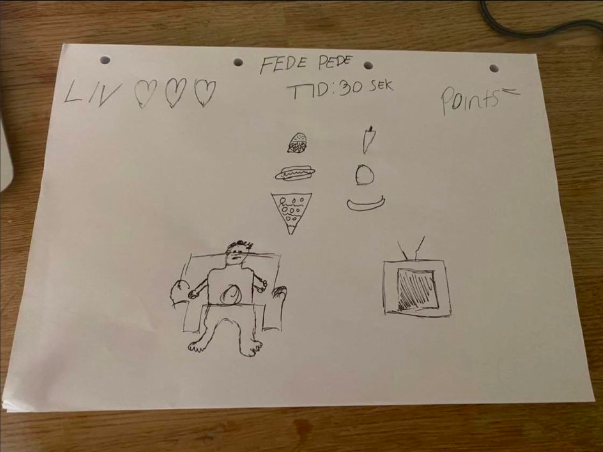 FEDE PEDE
LIV
TID: 30 SEK
Points=